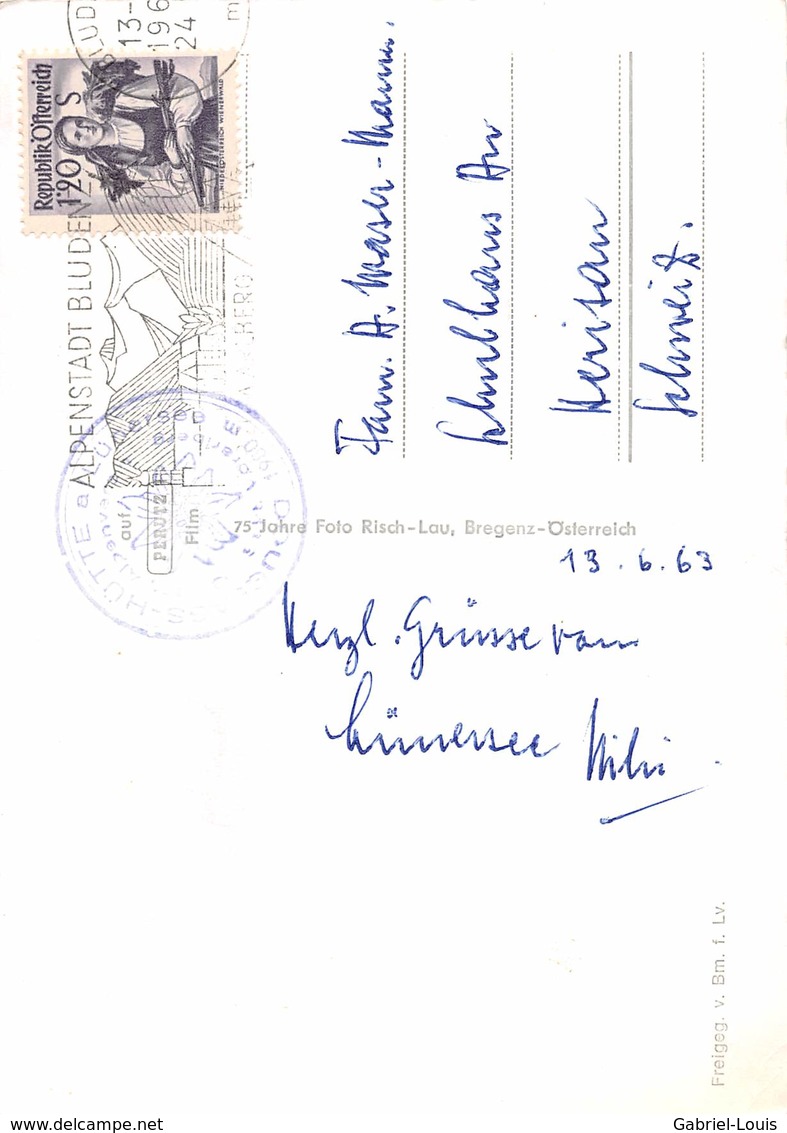 BLUD
13-
196
24
m
Republik Österreich
1'20 S
NIEDERÖSTERREICH WIENERWALD
ALPENSTADT BLUDENZ
auf
PERUTZ
Film
HÜTTE a. LÜNERSEE
75 Jahre Foto Risch-Lau, Bregenz-Österreich
Fam. A. Maser-Mann.
Schulhaus
Herisau
Schweiz.
13.6.63
Herzl. Grüsse vom
Lünersee
Freigeg. v. Bm. f. Lv.
Gabriel-Louis